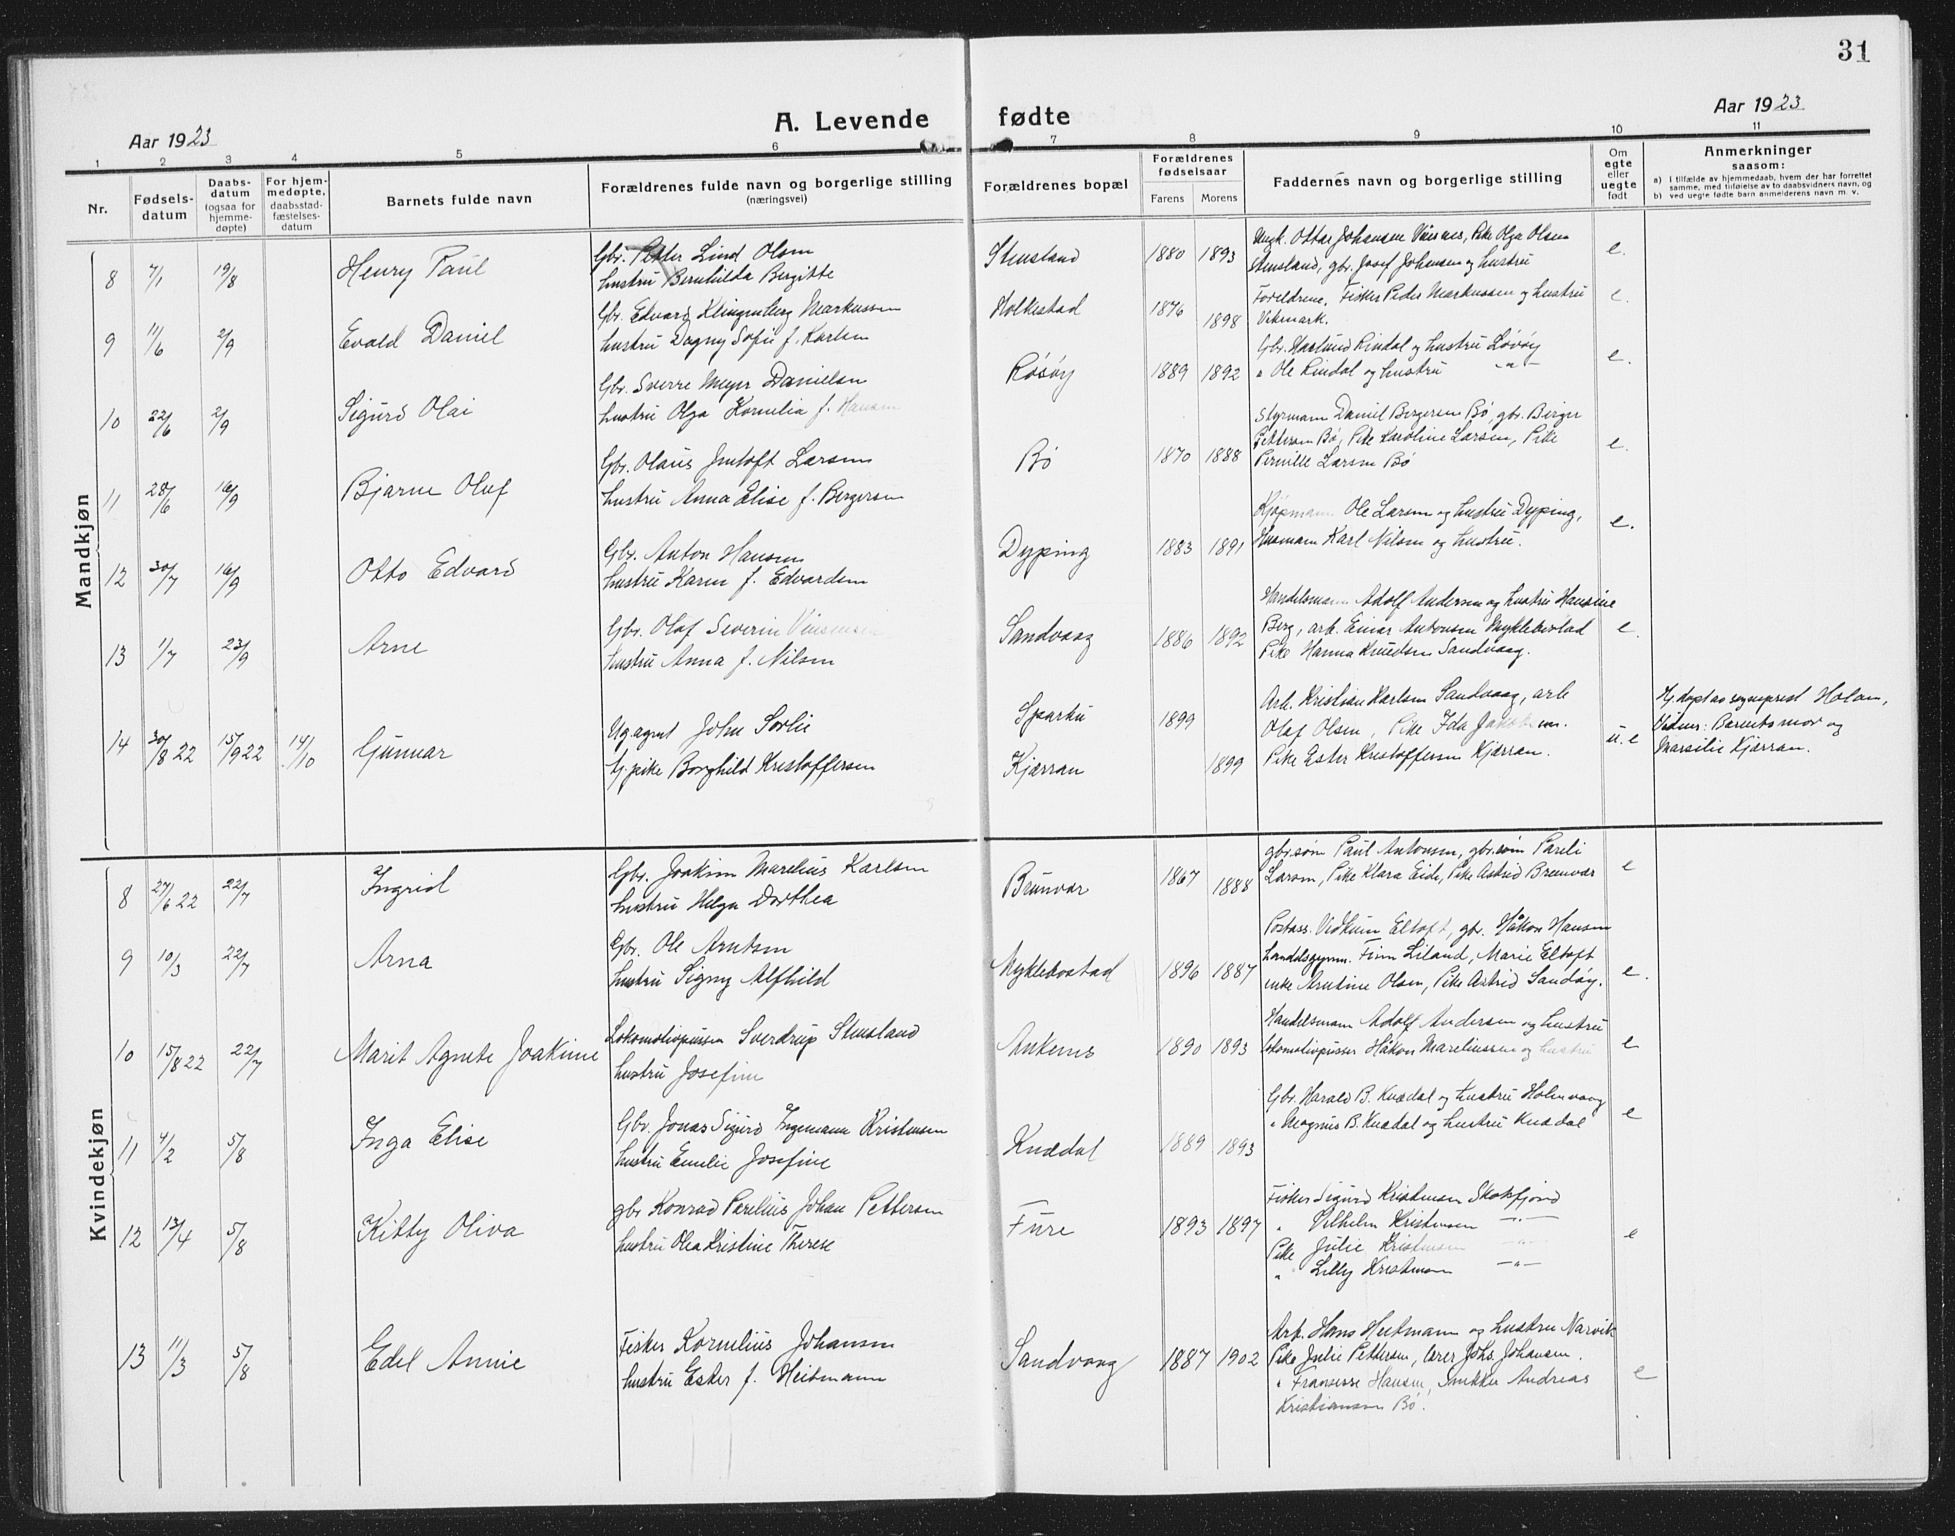 31
A. Levende fødte
Aar 1923
Aar 1923
1 2 3 4 5 6 7 8 9 10 11
Nr.
Fødsels-
datum
Daabs-
datum
(ogsaa for
hjemme-
døpte)
For hjem-
medøpte,
daabsstad-
fæstelses-
datum
Barnets fulde navn
Forældrenes fulde navn og borgerlige stilling
(næringsvei)
Forældrenes bopæl
Forældrenes
fødselsaar
Farens Morens
Faddernes navn og borgerlige stilling
Om
egte
eller
uegte
født
Anmerkninger
saasom:
a) I tilfælde av hjemmedaab, hvem der har forrettet
samme, med tilføielse av to daabsvidners navn, og
b) ved uegte fødte barn anmelderens navn m. v.
Mandkjøn
8 7/1 19/8 Henry Paul
Gbr. Petter Lind Olsen
hustru Bernhilda Bergitte
Stensland 1880 1893
Ungk. Ottar Johansen, Pike Olga Olsen
Stensland, gbr. Josef Johansen og hustru
e.
9 11/6 2/9 Evald Daniel
Gbr. Edvard Klingenberg Markussen
hustru Dagny Sofie f. Karlsen
Holkestad 1876 1898
Foreldrene, Fisker Peder Markussen og hustru
Vikmark.
e.
10 22/6 2/9 Sigurd Olai
Gbr. Sverre Meyer Danielsen
hustru Olga Kornelia f. Hansen
Røsøy 1889 1892
Gbr. Harlund Rindal og hustru Løvøy
" Ole Rindal og hustru -"-
e.
11 28/6 16/9 Bjarne Olaf
Gbr. Olaus Jentoft Larsen
hustru Anna Elise f. Bergersen
Bø 1870 1888
Styrmann Daniel Bergersen Bø, gbr. Berger
Pettersen Bø, Pike Karoline Larsen, Pike
Pernille Larsen Bø
e.
12 30/7 16/9 Otto Edvard
Gbr. Anton Hansen
hustru Karen f. Edvardsen
Dyping 1883 1891
Kjøpmann Ole Larsen og hustru Dyping,
Husmann Karl Nilsen og hustru.
e.
13 1/7 23/9 Arne
Gbr. Olaf Severin
hustru Anna f. Nilsen
Sandvaag 1886 1892
Handelsmann Adolf Andersen og hustru Hansine
Berg, arb. Einar Antonsen Myklebostad
Pike Hanna Knudsen Sandvaag.
e.
14 30/8 22 15/9 22 14/10 Gunnar
Ugagent John Sørlie
hj. pike Borghild Kristoffersen
Kjerran
1899
1899
Arb. Kristian Karlsen Sandvaag, arb
Olaf Olsen, Pike Ida Jakobsen.
Pike Ester Kristoffersen Kjerran.
u.e
Hj. døpt av sogneprest Holan,
Vidner: Barnets mor og
Marsilie Kjerran.
Kvindekjøn
8 27/6 22 22/7 Ingrid
Gbr. Joakim Marelius Karlsen
hustru Helga Dorthea
Brunvær 1867 1888
gbr.søn Paul Antonsen, gbr.søn Pareli
Larsen, Pike Klara Eide, Pike Astrid Brunvær
e
9 10/3 22/7 Arna
Gbr. Ole Arntsen
hustru Signy Alfhild
Myklebostad 1896 1887
Postass. Vidkunn Eltoft, gbr. Håkon Hansen
Landdsgymn. Finn Liland, Marie Eltoft
enke Arntine Olsen, Pike Astrid Sandøy.
e.
10 15/8 22 22/7 Marit Agnete Joakime
Lokomotivpusser Sverdrup Stensland
hustru Josefine
Ankenes 1890 1893
Handelsmann Adolf Andersen og hustru
lokomotivpusser Håkon Mareliussen og hustru
e
11 4/2 5/8 Inga Elise
Gbr. Jonas Sigurd Ingemann Kristensen
hustru Emelie Josefine
Knædal 1889 1893
Gbr. Harald B. Knædal og hustru Holmvaag
" Magnus B. Knædal og hustru Knædal
e
12 13/4 5/8 Kitty Oliva
gbr Konrad Parelius Johan Pettersen
hustru Olea Kristine Therese
Fure 1893 1897
Fisker Sigurd Kristensen Skotsfjord
" Vilhelm Kristensen -"-
Pike Julie Kristensen -"-
" Lilly Kristensen -"-
e
13 11/3 5/8 Edel Annie
Fisker Kornelius Johansen
hustru Ester f. Heitmann
Sandvaag 1887 1902
Arb. Hans Heitmann og hustru Narvik
Pike Julie Pettersen, lærer Johs. Johansen.
" Fransesse Hansen, Snekker Andreas
Kristiansen Bø.
e